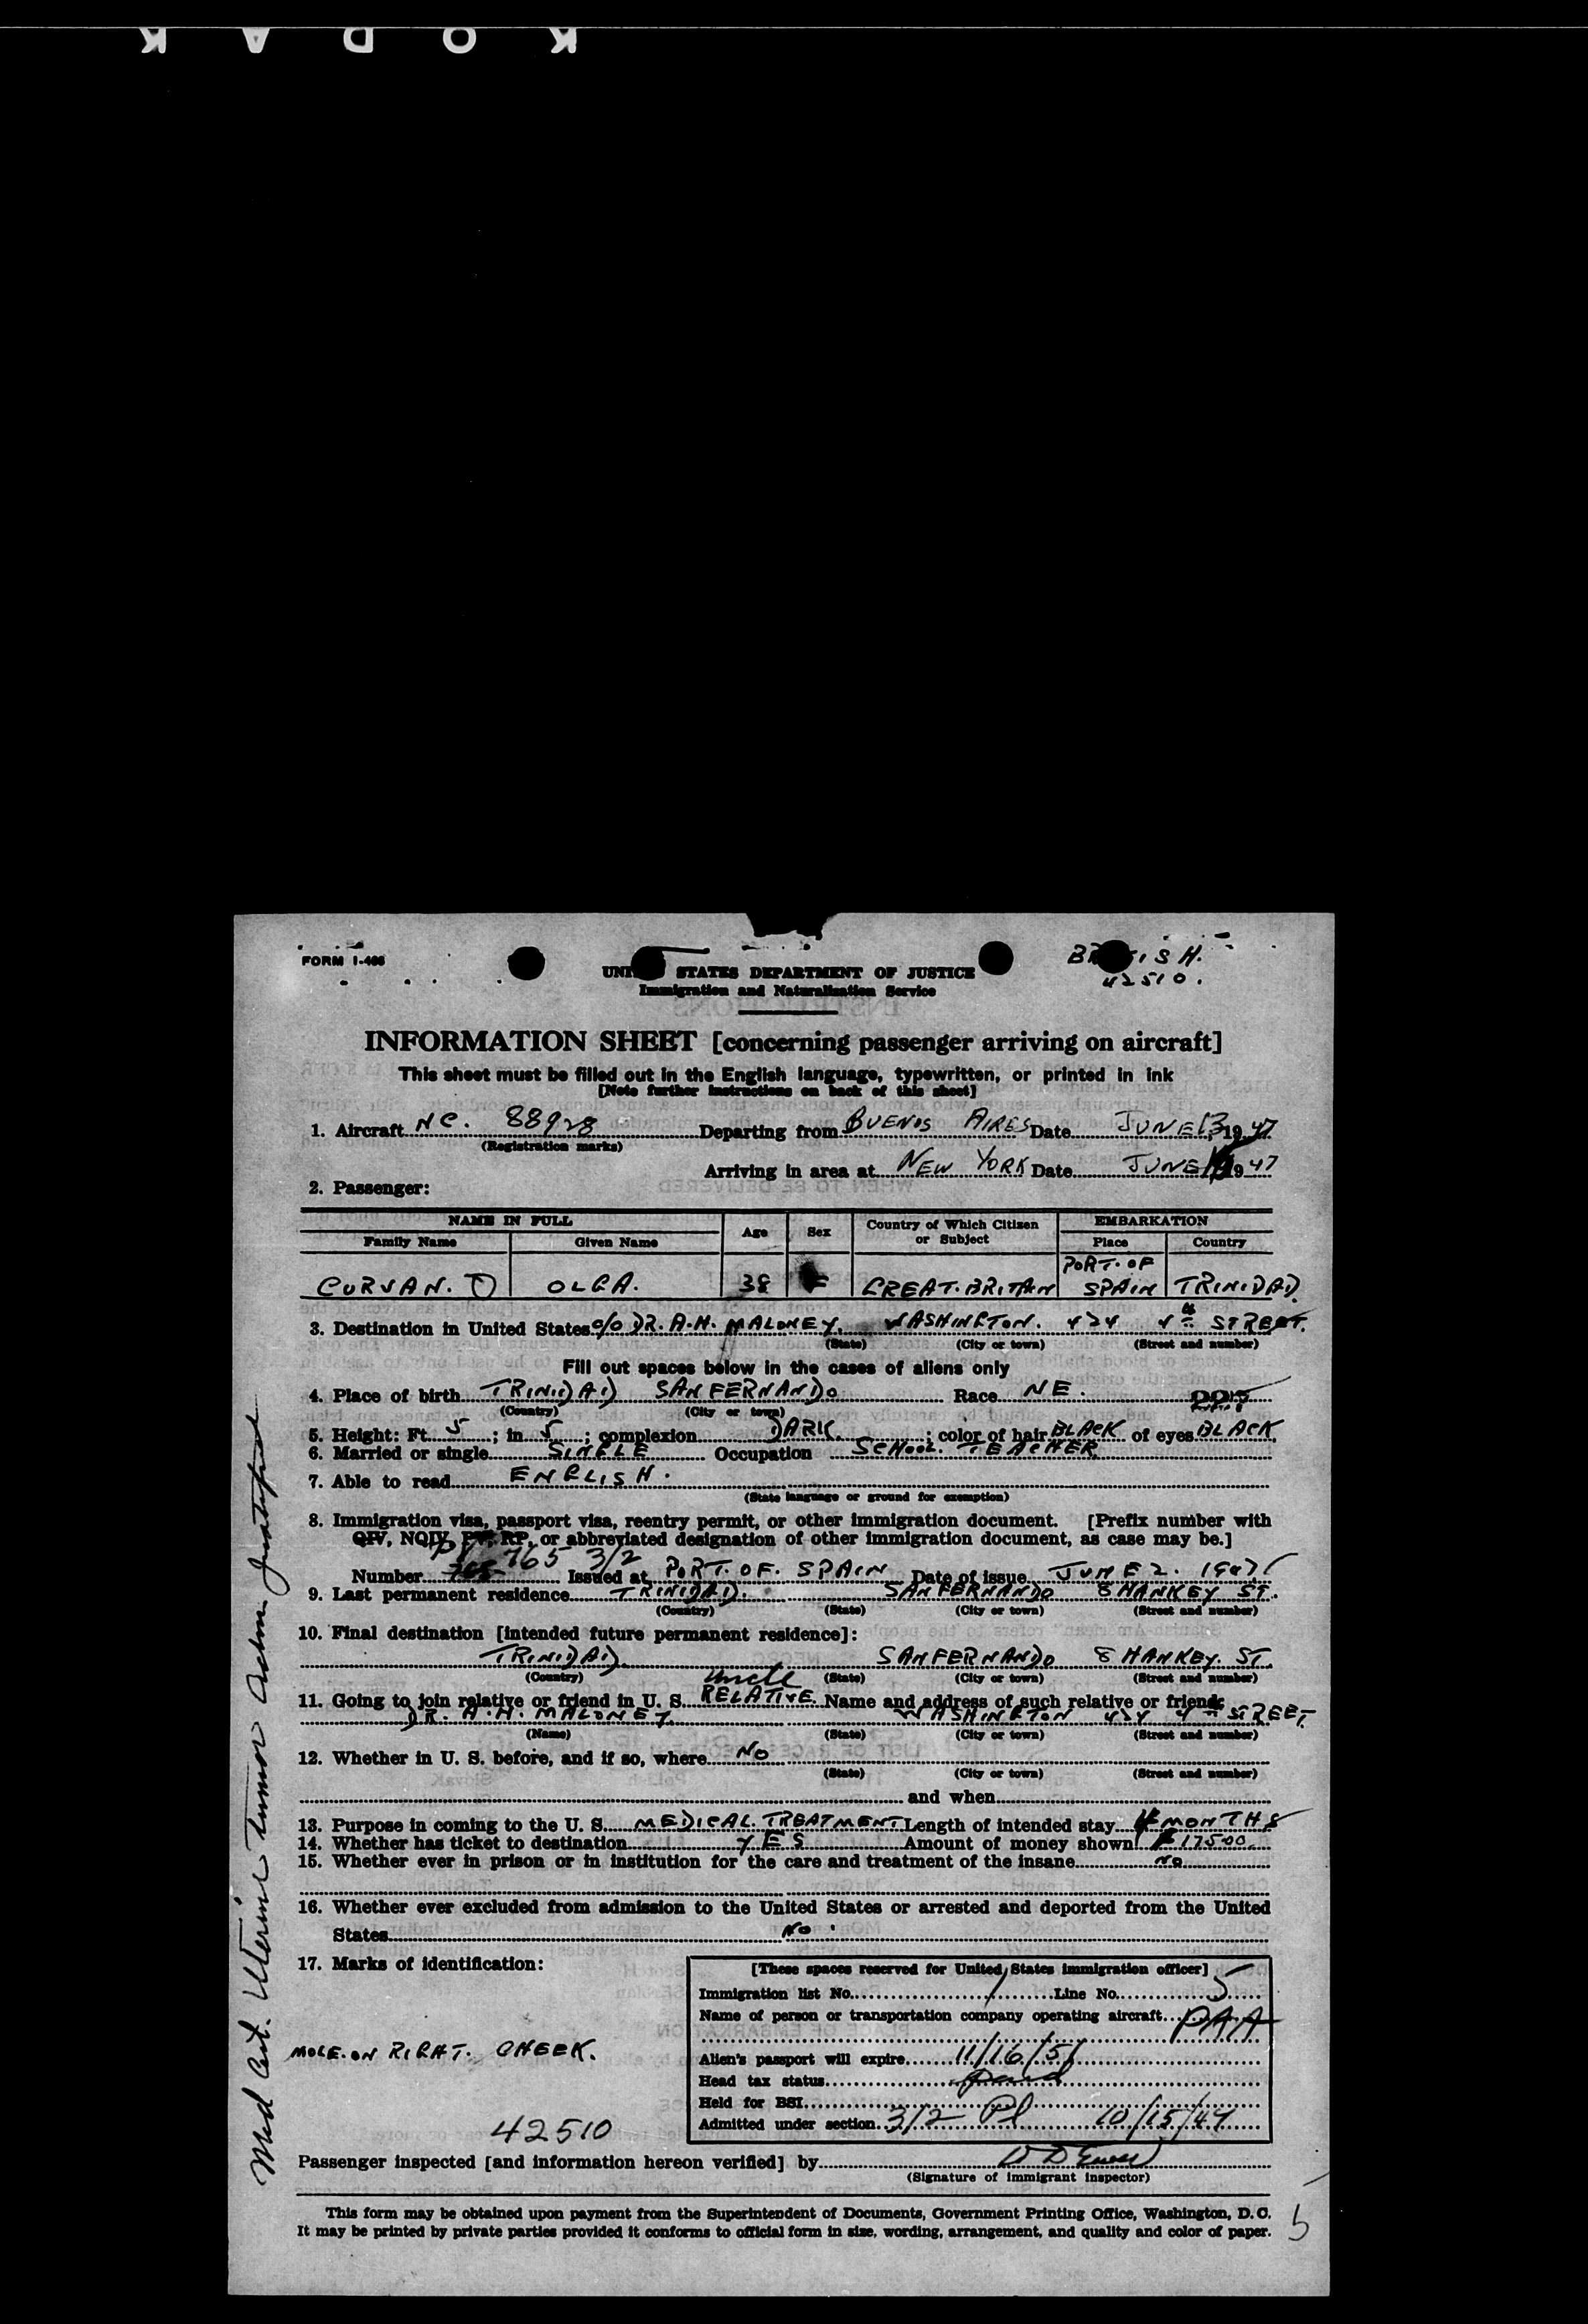 KODAK
FORM I-466
BRITISH.
42510.
UNITED STATES DEPARTMENT OF JUSTICE
Immigration and Naturalization Service
INFORMATION SHEET [concerning passenger arriving on aircraft]
This sheet must be filled out in the English language, typewritten, or printed in ink
[Note further instructions on back of this sheet]
1. Aircraft NC. 88928 Departing from BUENOS AIRES Date JUNE 13, 1947
(Registration marks)
Arriving in area at NEW YORK Date JUNE 1947
2. Passenger:
NAME IN FULL Age Sex Country of Which Citizen or Subject EMBARKATION
Family Name Given Name Place Country
CURVAN. OLGA. 38 F GREAT. BRITAIN PORT. OF SPAIN TRINIDAD.
3. Destination in United States c/o DR. A.H. MALONEY. WASHINGTON. 424 4th STREET.
(State) (City or town) (Street and number)
Fill out spaces below in the cases of aliens only
4. Place of birth TRINIDAD SAN FERNANDO Race NE.
(Country) (City or town)
5. Height: Ft. 5; in 5; complexion DARK.; color of hair BLACK of eyes BLACK.
6. Married or single SINGLE Occupation SCHOOL. TEACHER.
7. Able to read ENGLISH.
(State language or ground for exemption)
8. Immigration visa, passport visa, reentry permit, or other immigration document. [Prefix number with
QIV, NQIV, PV, RP, or abbreviated designation of other immigration document, as case may be.]
Number 765 3/2 Issued at PORT. OF. SPAIN Date of issue JUNE 2. 1947
9. Last permanent residence TRINIDAD. SAN FERNANDO 8 HANKEY ST.
(Country) (State) (City or town) (Street and number)
10. Final destination [intended future permanent residence]:
TRINIDAD. SAN FERNANDO 8 HANKEY. ST.
(Country) (State) (City or town) (Street and number)
uncle
11. Going to join relative or friend in U. S. RELATIVE Name and address of such relative or friend:
DR. A.H. MALONEY WASHINGTON 424 4th STREET.
(Name) (State) (City or town) (Street and number)
12. Whether in U. S. before, and if so, where NO
(State) (City or town) (Street and number)
and when
13. Purpose in coming to the U. S. MEDICAL. TREATMENT Length of intended stay 4 MONTHS
14. Whether has ticket to destination YES Amount of money shown 175.00
15. Whether ever in prison or in institution for the care and treatment of the insane NO
16. Whether ever excluded from admission to the United States or arrested and deported from the United
States NO.
17. Marks of identification:
MOLE. ON RIGHT. CHEEK.
42510
[These spaces reserved for United States immigration officer]
Immigration list No. 1 Line No. 5
Name of person or transportation company operating aircraft PAA
Alien's passport will expire 11/16/51
Head tax status paid
Held for BSI
Admitted under section 3/2 Pl 10/15/47
Passenger inspected [and information hereon verified] by
(Signature of immigrant inspector)
This form may be obtained upon payment from the Superintendent of Documents, Government Printing Office, Washington, D. C.
It may be printed by private parties provided it conforms to official form in size, wording, arrangement, and quality and color of paper.
5
Med Cert. Uterine Tumor